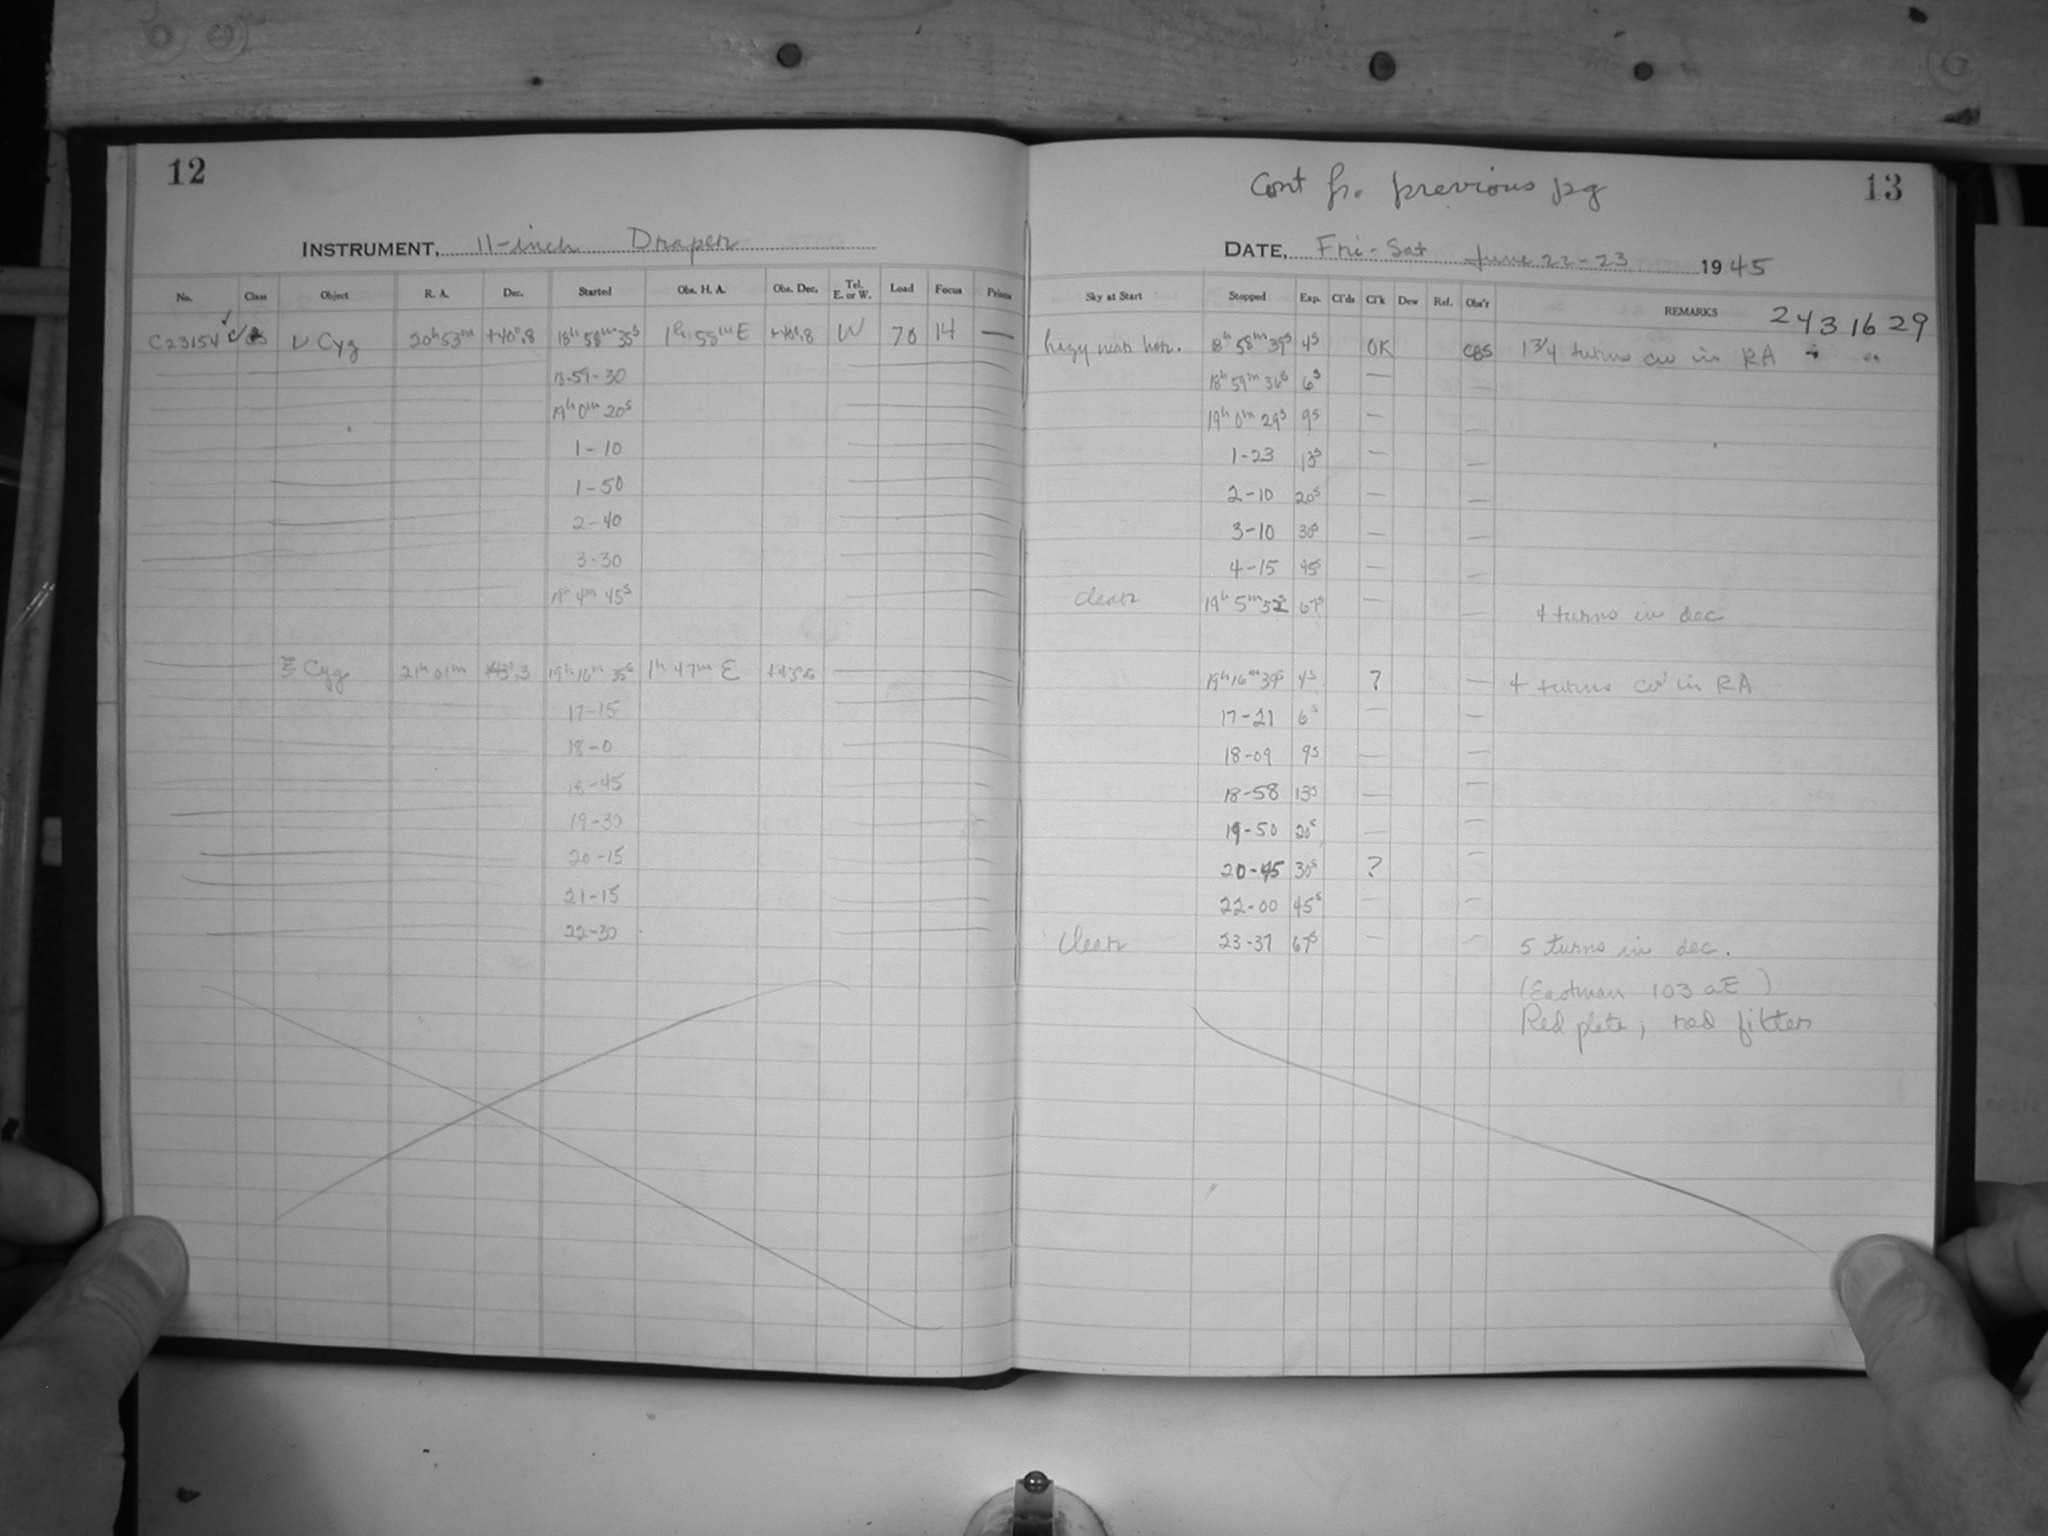 12
INSTRUMENT, 11-inch Draper
No. Class Object R. A. Dec. Started Obs. H. A. Obs. Dec. Tel. E. or W. Load Focus Prisms
C23154 ν Cyg 20h 53m +40°.8 18h 58m 35s 1h 58m E +40°.8 W 70 14 —
18-59-30
19h 0m 20s
1-10
1-50
2-40
3-30
19h 4m 45s
ξ Cyg 21h 01m +43°.3 19h 16m 35s 1h 47m E
17-15
18-0
18-45
19-30
20-15
21-15
22-30
Cont fr. previous pg
13
DATE, Fri-Sat June 22-23 1945
Sky at Start Stopped Exp. Cl'ds Cl'k Dew Ref. Obs'r REMARKS 2431629
hazy near hor. 18h 58m 39s 4s OK CBS 1 3/4 turns cw in RA
18h 59m 36s 6s — —
19h 0m 29s 9s — —
1-23 13s — —
2-10 20s — —
3-10 30s — —
4-15 45s — —
clear 19h 5m 52s 67s — — 4 turns in dec
19h 16m 39s 4s ? — 4 turns cw in RA
17-21 6s — —
18-09 9s — —
18-58 13s — —
19-50 20s — —
20-45 30s ? —
22-00 45s — —
Clear 23-37 67s — — 5 turns in dec.
(Eastman 103aE)
Red plate; red filter